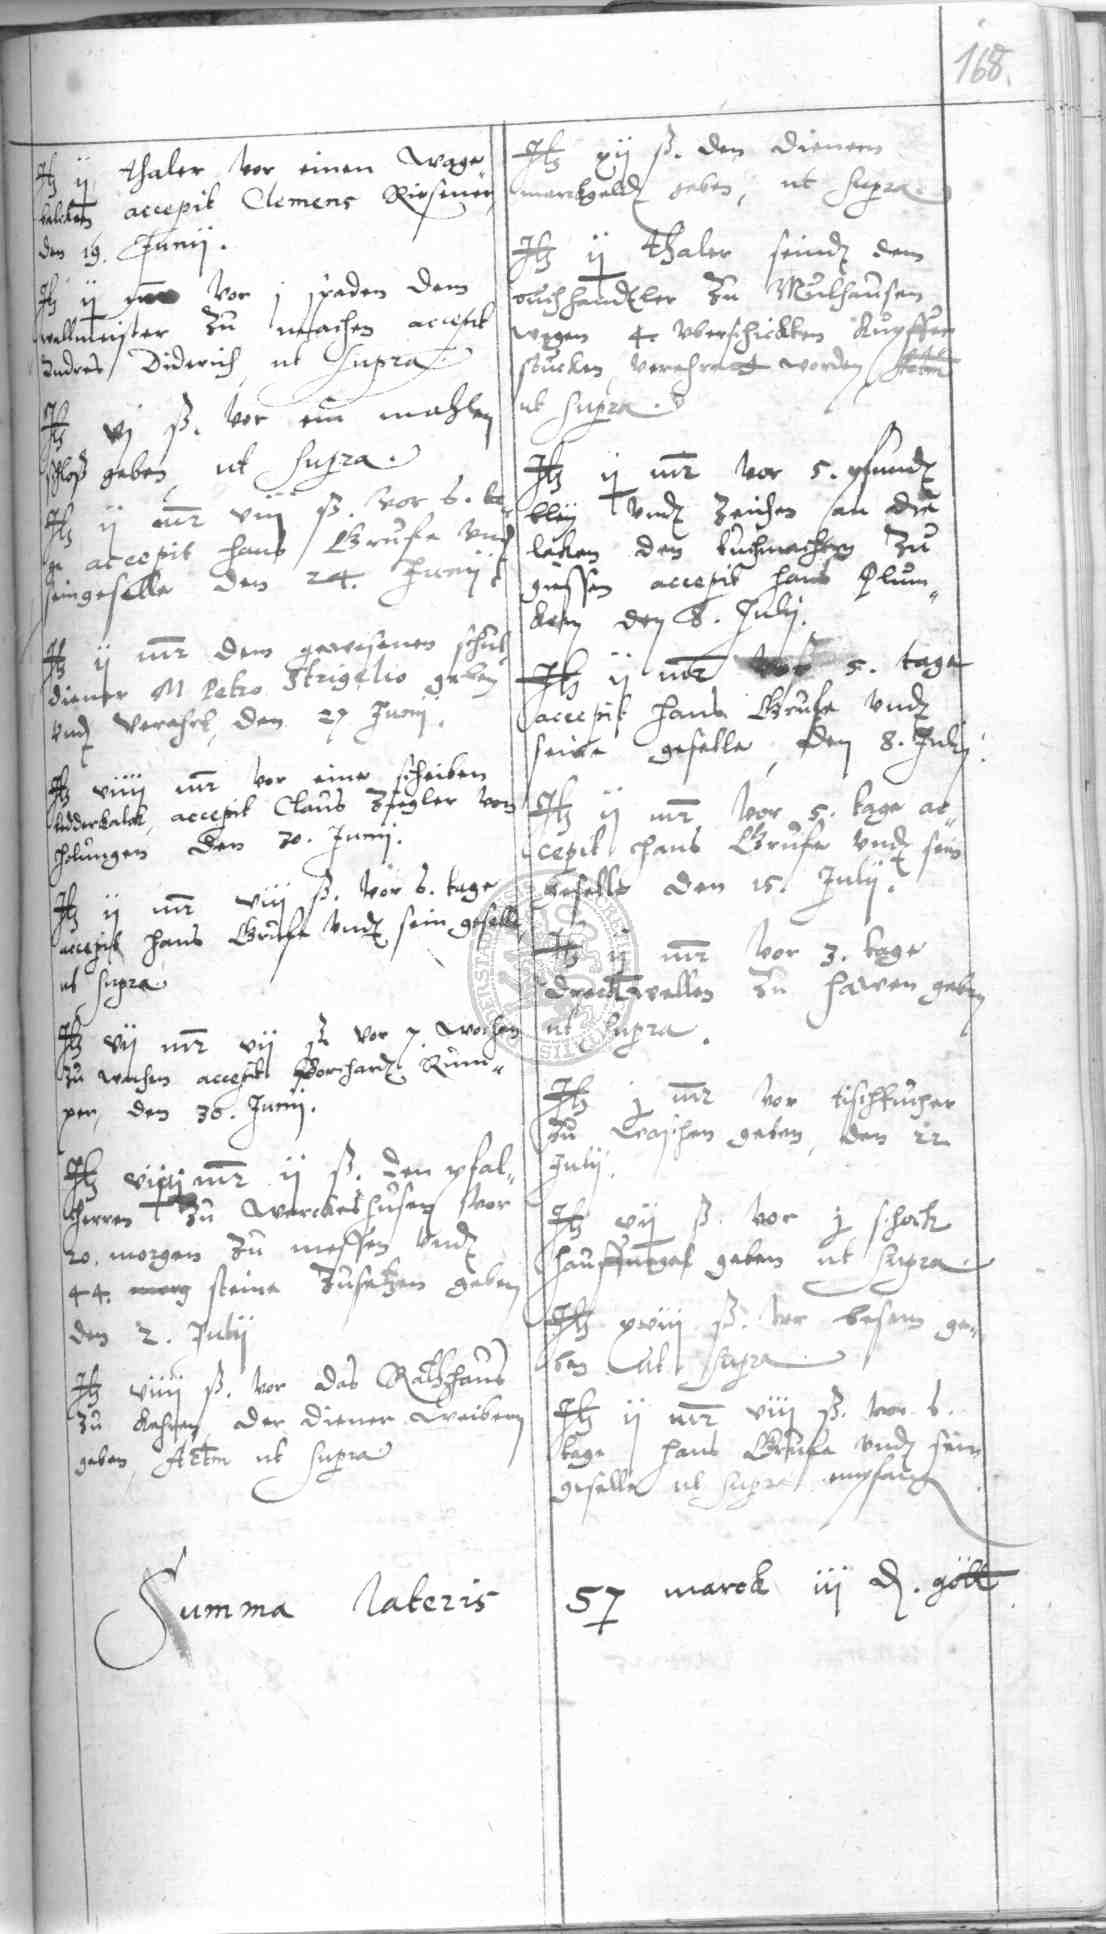 168.
Itz ij thaler vor einen wage
balcken, accepit Clemens Kirsener,
den 19. Junij.
Itz ij mr vor j spaden dem
wallmeister zu machen accepit
Andres Diderich, ut supra.
Itz vj ß. vor ein mahlen
schloß geben, ut supra.
Itz ij mr viij ß. vor 6. ta-
ge accepit hans Grufe und
sein geselle den 24. Junij
Itz ij mr dem gewesenen schul
diener M Petro Strigelio geben
und verehrt, den 27 Junij.
Itz viiij mr vor eine scheiben
ledderkalck, accepit Claus Ziegler von
Holungen den 30. Junij.
Itz ij mr viij ß. vor 6. tage
accepit hans Grufe und sein geselle,
ut supra
Itz vij mr vij ß vor 7. wochen
zu wachen accepit Borchard Rum-
per, den 30. Junij.
Itz viiij mr ij ß. den pfal-
herren zu Werckeshusen vor
20. morgen zu messen und
44. morg steine zusetzen geben
den 2. Julij
Itz viiij ß. vor das Rathhaus
zu kehren der diener weibern
geben, Actm ut supra
Itz xij ß. den dienern
marckgeld geben, ut supra.
Itz ij thaler seind dem
buchhandler zu Mulhausen
wegen 4. uberschickten Kupffer
stucken verehret worden Actm
ut supra.
Itz ij mr vor 5. pfund
bley und zeichen an die
laken den tuchmachern zu
giessen accepit hans Plum-
ken den 8. Julij.
Itz ij mr vor 5. tage
accepit hans Grufe und
seine geselle, den 8. Julij.
Itz ij mr vor 5. tage ac-
cepit hans Grufe und sein
geselle den 15. Julij.
Itz ij mr vor 3. tage
dreckwellen zu hawen geben
ut supra.
Itz j mr vor tischtucher
zu waschen geben, den 22
Julij.
Itz vij ß. vor j schock
hauffnagel geben ut supra.
Itz xviij ß. vor besem ge-
ben ut supra
Itz ij mr viij ß. vor 6.
tage hans Grufe und sein
geselle ut supra empfang
Summa lateris 57 marck iij d. gött.